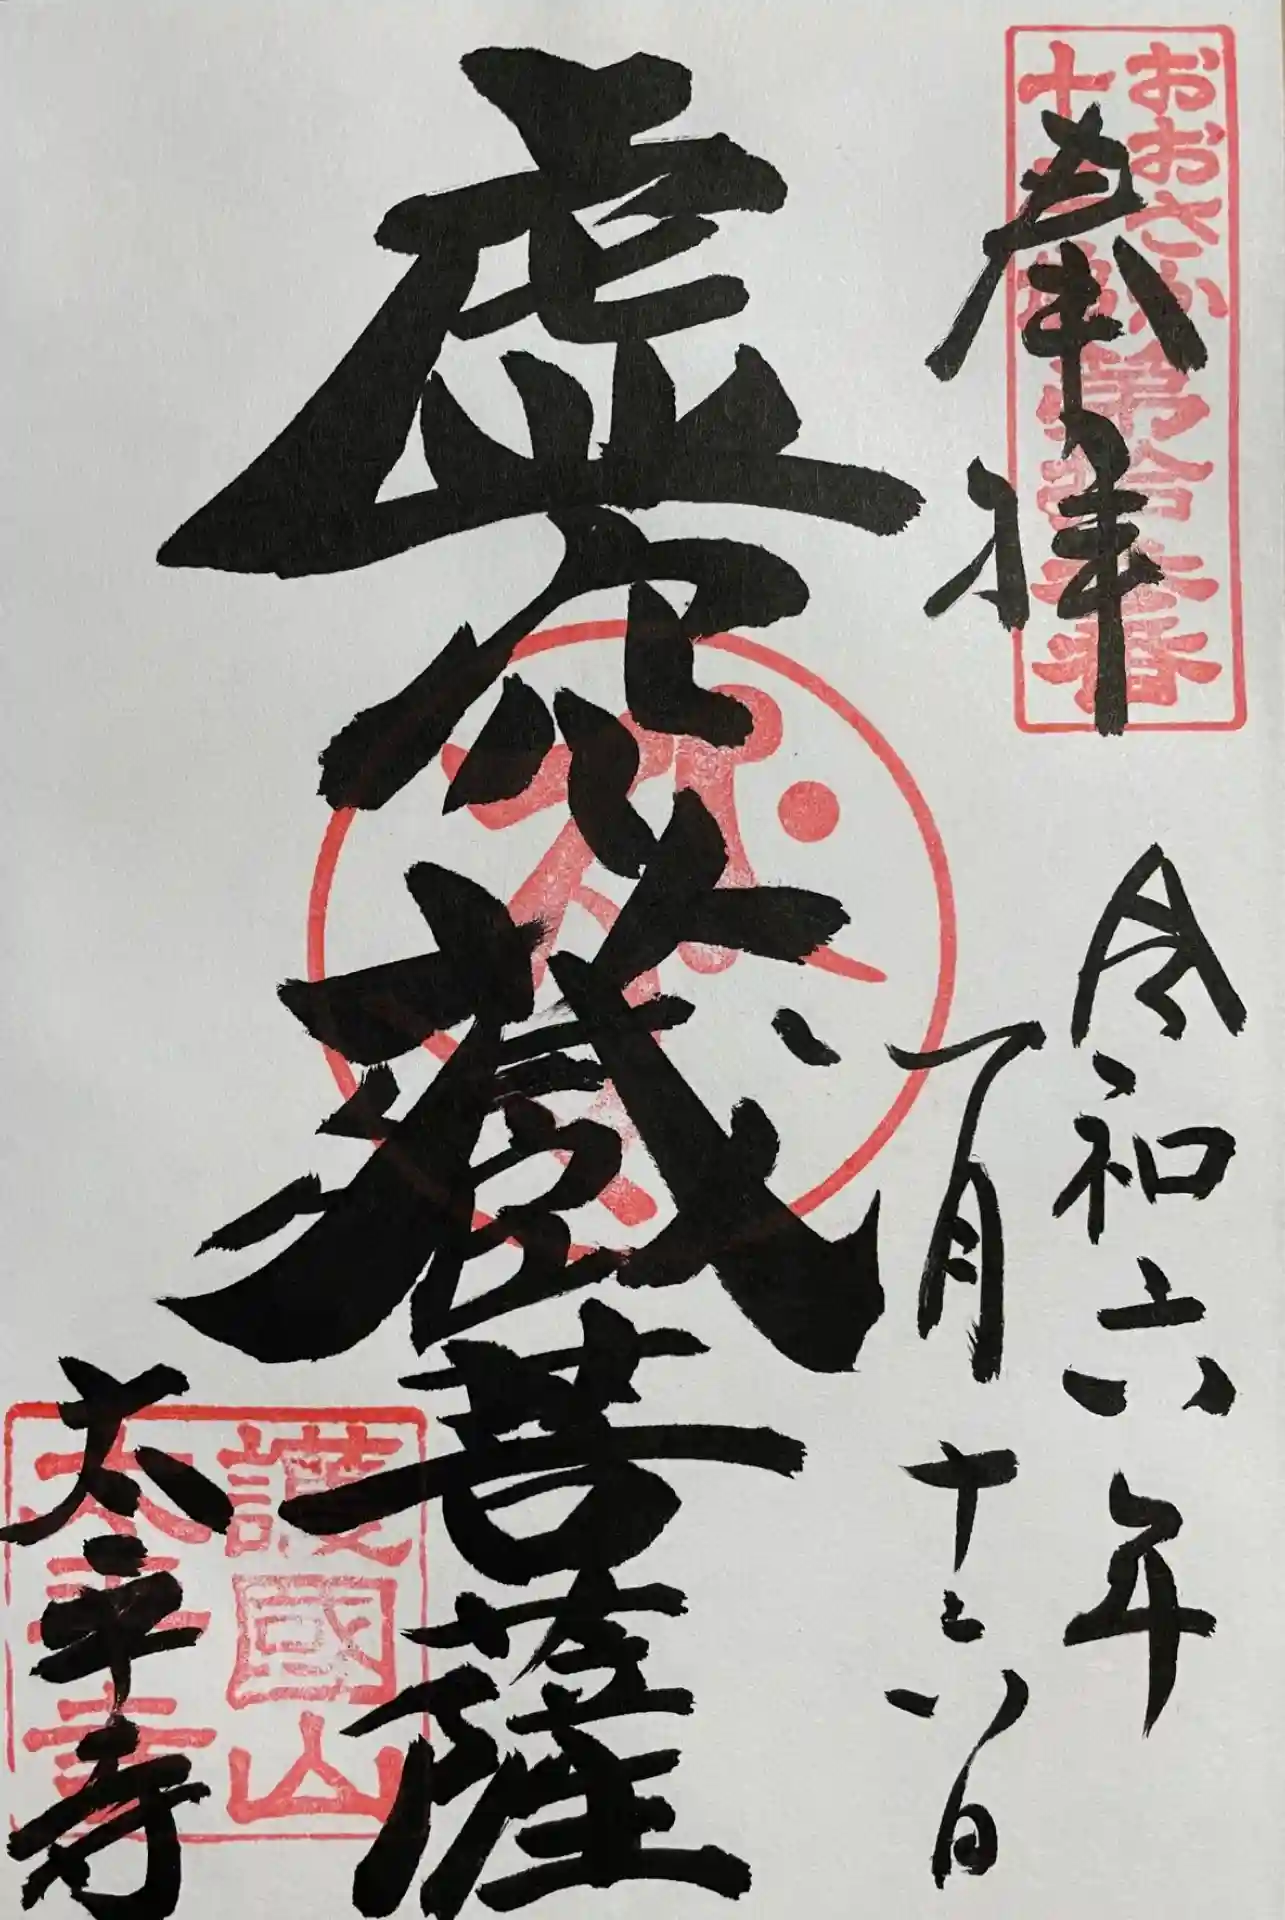 おおさか
十三佛
第拾参番
奉拝
令和六年
一月十六日
虚空蔵菩薩
護國山
太平寺
太平寺